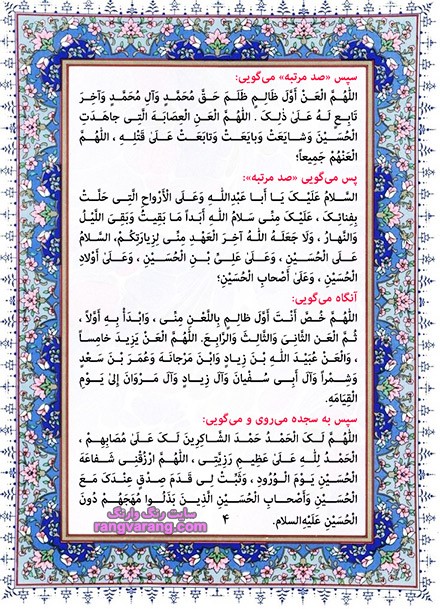 سپس «صد مرتبه» می‌گویی:
اَللّٰهُمَّ الْعَنْ أَوَّلَ ظَالِمٍ ظَلَمَ حَقَّ مُحَمَّدٍ وَآلِ مُحَمَّدٍ وَآخِرَ
تَابِعٍ لَهُ عَلَىٰ ذٰلِكَ . اَللّٰهُمَّ الْعَنِ الْعِصَابَةَ الَّتِي جَاهَدَتِ
الْحُسَيْنَ وَشَايَعَتْ وَبايَعَتْ وَتابَعَتْ عَلَىٰ قَتْلِهِ ، اَللّٰهُمَّ
الْعَنْهُمْ جَمِيعاً؛
پس می‌گویی «صد مرتبه»:
السَّلامُ عَلَيْكَ يَا أَبا عَبْدِاللّٰهِ وَعَلَى الْأَرْواحِ الَّتِي حَلَّتْ
بِفِنائِكَ ، عَلَيْكَ مِنِّي سَلامُ اللّٰهِ أَبَداً مَا بَقِيتُ وَبَقِيَ اللَّيْلُ
وَالنَّهارُ ، وَلَا جَعَلَهُ اللّٰهُ آخِرَ الْعَهْدِ مِنِّي لِزِيارَتِكُمْ، السَّلامُ
عَلَى الْحُسَيْنِ ، وَعَلَىٰ عَلِيِّ بْنِ الْحُسَيْنِ ، وَعَلَىٰ أَوْلادِ
الْحُسَيْنِ ، وَعَلَىٰ أَصْحابِ الْحُسَيْنِ؛
آنگاه می‌گویی:
اَللّٰهُمَّ خُصَّ أَنْتَ أَوَّلَ ظالِمٍ بِاللَّعْنِ مِنِّي ، وَابْدَأْ بِهِ أَوَّلاً ،
ثُمَّ الْعَنِ الثَّانِيَ وَالثَّالِثَ وَالرَّابِعَ. اَللّٰهُمَّ الْعَنْ يَزِيدَ خامِساً
، وَالْعَنْ عُبَيْدَ اللّٰهِ بْنَ زِيادٍ وَابْنَ مَرْجانَةَ وَعُمَرَ بْنَ سَعْدٍ
وَشِمْراً وَآلَ أَبِي سُفْيانَ وَآلَ زِيادٍ وَآلَ مَرْوَانَ إِلىٰ يَوْمِ
الْقِيَامَهِ.
سپس به سجده می‌روی و می‌گویی:
اَللّٰهُمَّ لَكَ الْحَمْدُ حَمْدَ الشَّاكِرِينَ لَكَ عَلَىٰ مُصَابِهِمْ ،
الْحَمْدُ لِلّٰهِ عَلَىٰ عَظِيمِ رَزِيَّتِي ، اَللّٰهُمَّ ارْزُقْنِي شَفاعَةَ
الْحُسَيْنِ يَوْمَ الْوُرُودِ ، وَثَبِّتْ لِي قَدَمَ صِدْقٍ عِنْدَكَ مَعَ
الْحُسَيْنِ وَأَصْحابِ الْحُسَيْنِ الَّذِينَ بَذَلُوا مُهَجَهُمْ دُونَ
الْحُسَيْنِ عَلَيْهِ‌السلام.
۴
سایت رنگ وارنگ
rangvarang.com